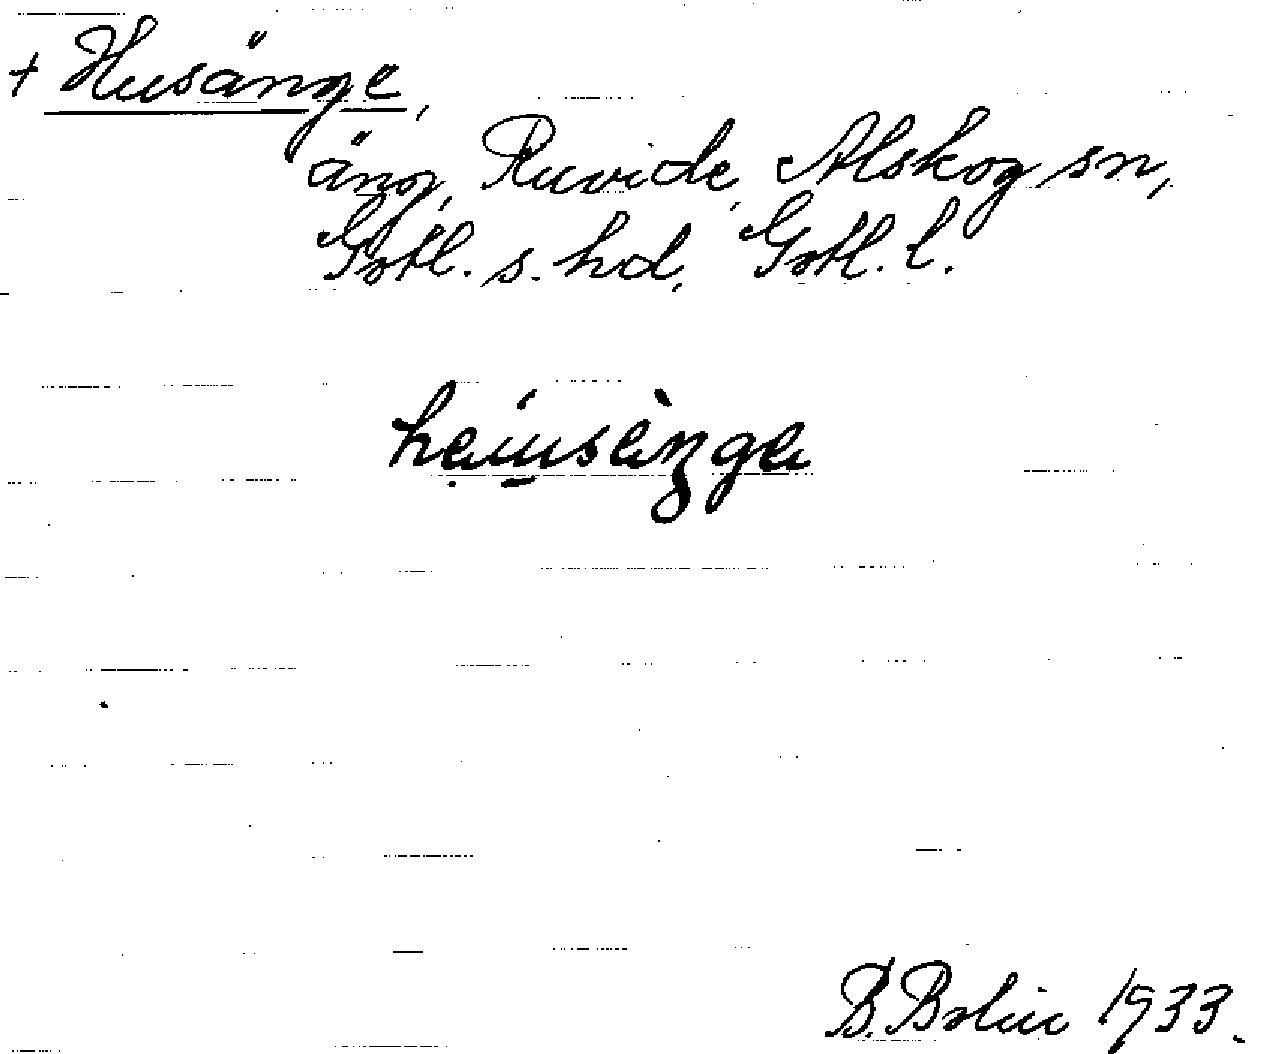 + Husänge,
äng, Ruvide, Alskog sn,
Gotl. s. hd, Gotl. l.
B. Bolin 1933.